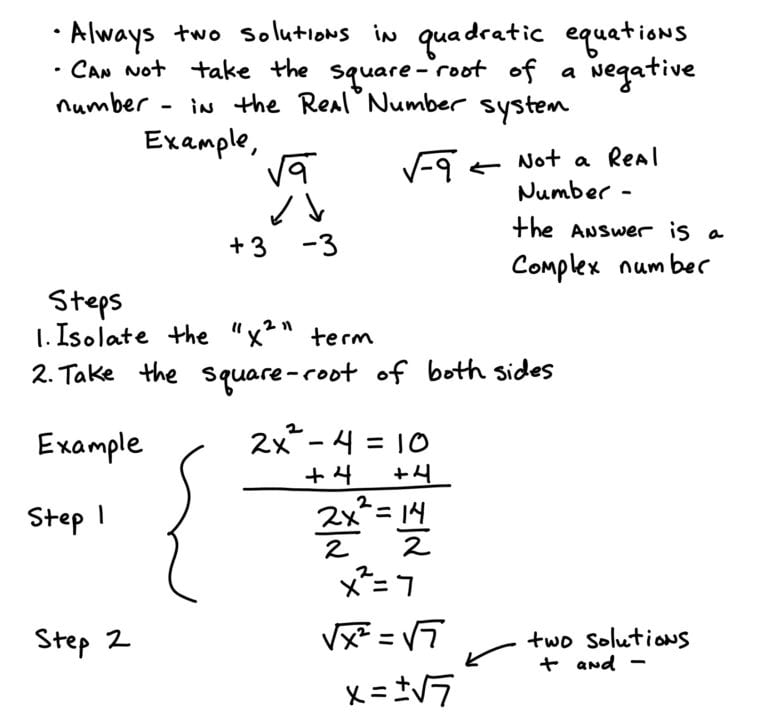 · Always two solutions in quadratic equations
· Can not take the square-root of a negative
number - in the Real Number system
Example,
√9
+3 -3
√-9 ← Not a Real
Number -
the Answer is a
Complex number
Steps
1. Isolate the "x²" term
2. Take the square-root of both sides
Example
2x² - 4 = 10
+4 +4
Step 1
2x² = 14
2 2
x² = 7
Step 2
√x² = √7
two solutions
+ and -
x = ±√7